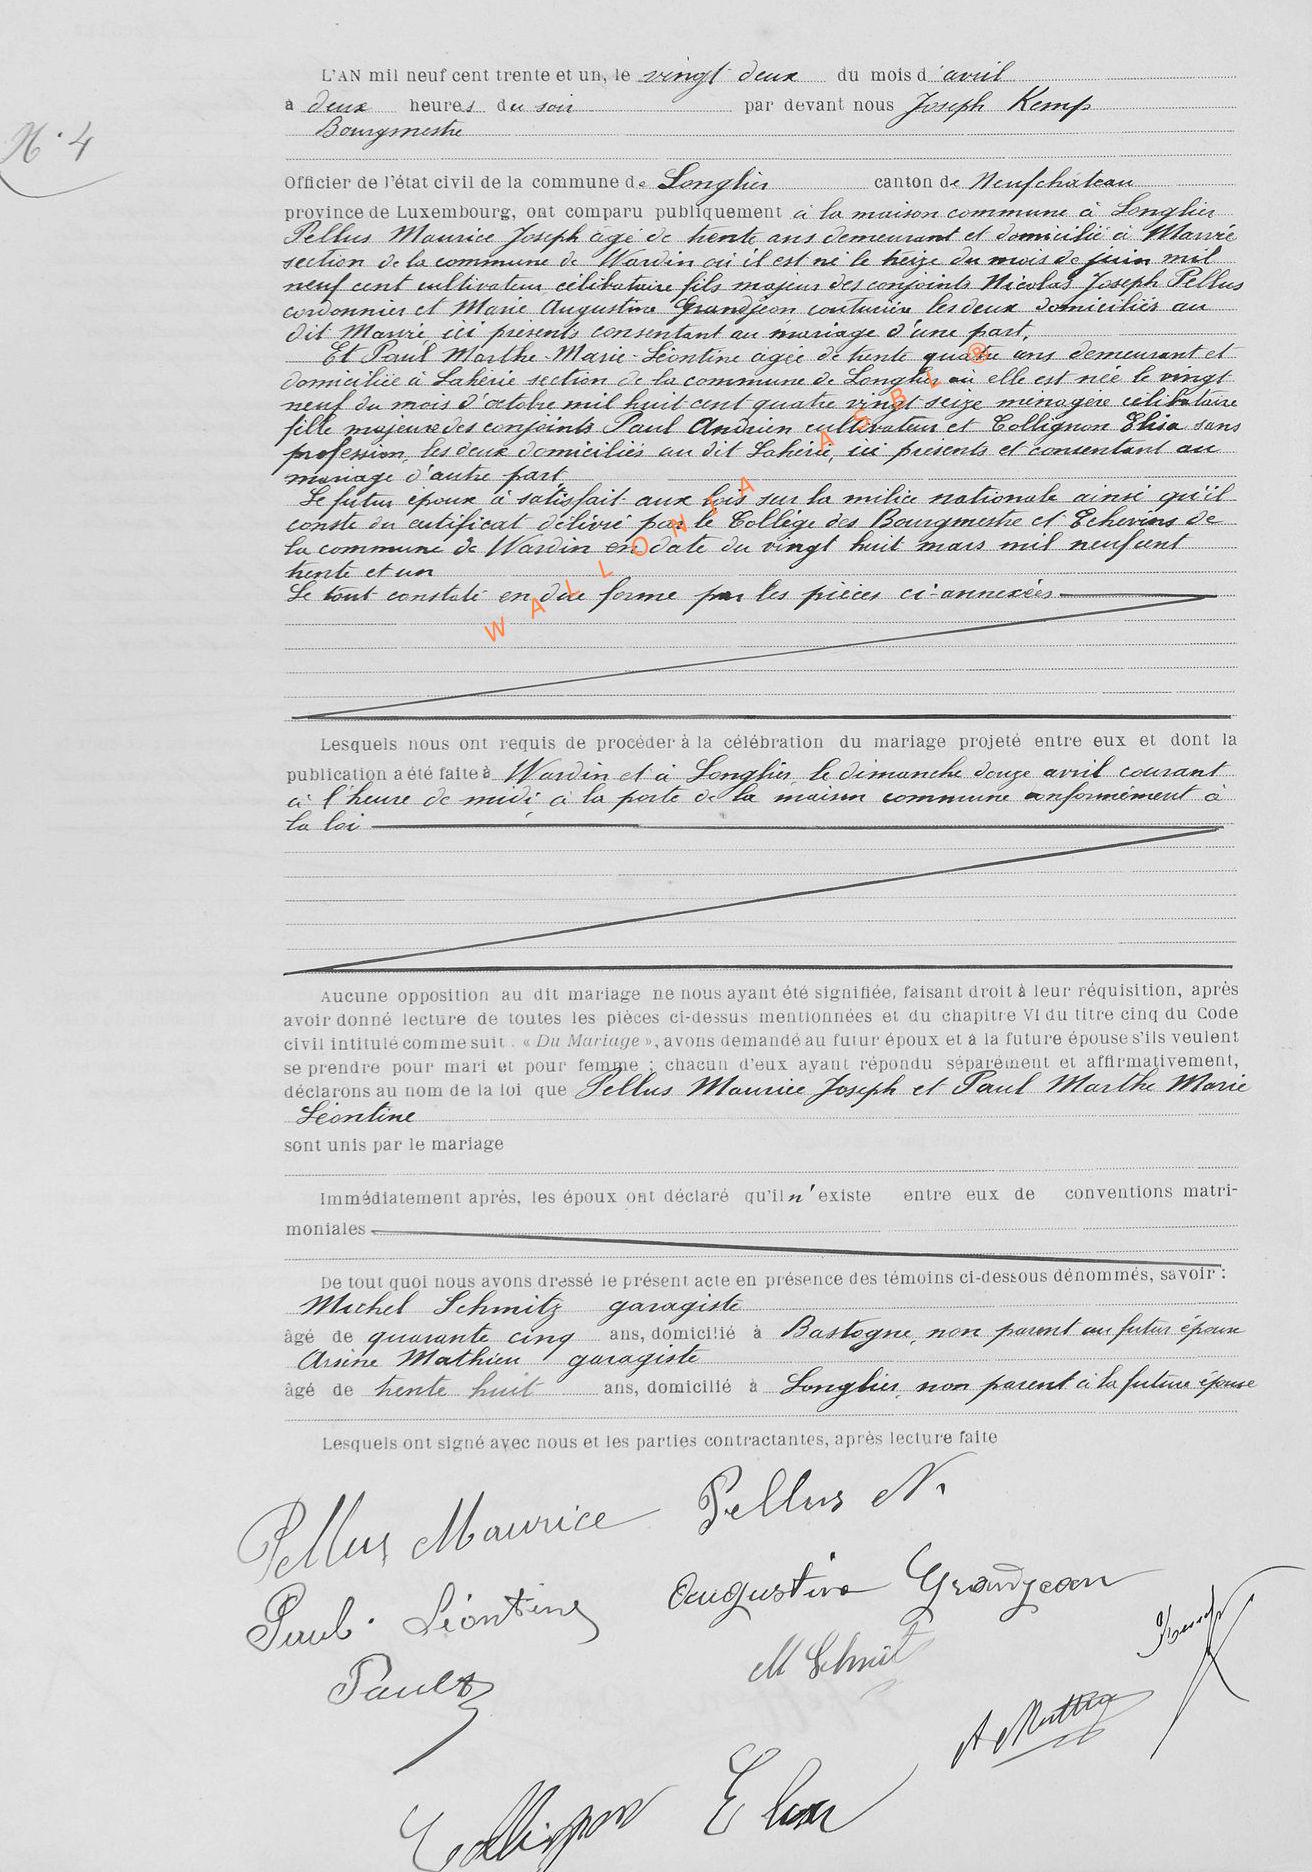 L'AN mil neuf cent trente et un, le vingt deux du mois d'avril
à deux heures du soir par devant nous Joseph Kemp
Bourgmestre
N° 4
Officier de l'état civil de la commune de Longlier canton de Neufchâteau
province de Luxembourg, ont comparu publiquement à la maison commune à Longlier
Pellus Maurice Joseph âgé de trente ans demeurant et domicilié à Marvie
section de la commune de Wardin où il est né le treize du mois de juin mil
neuf cent cultivateur célibataire fils majeur des conjoints Nicolas Joseph Pellus
cordonnier et Marie Augustine Grandjean couturière les deux domiciliés au
dit Marvie, ici présents consentant au mariage d'une part.
Et Paul Marthe-Marie-Léontine âgée de trente quatre ans demeurant et
domiciliée à Lahérie section de la commune de Longlier où elle est née le vingt
neuf du mois d'octobre mil huit cent quatre vingt seize ménagère célibataire
fille majeure des conjoints Paul Andrien cultivateur et Collignon Elisa sans
profession, les deux domiciliés au dit Lahérie, ici présents et consentant au
mariage d'autre part.
Le futur époux à satisfait aux lois sur la milice nationale ainsi qu'il
conste du certificat délivré par le Collège des Bourgmestre et Echevins de
la commune de Wardin en date du vingt huit mars mil neuf cent
trente et un
Le tout constaté en due forme par les pièces ci-annexées
WALLONIA ASBL ®
Lesquels nous ont requis de procéder à la célébration du mariage projeté entre eux et dont la
publication a été faite à Wardin et à Longlier, le dimanche douze avril courant
à l'heure de midi à la porte de la maison commune conformément à
la loi
Aucune opposition au dit mariage ne nous ayant été signifiée, faisant droit à leur réquisition, après
avoir donné lecture de toutes les pièces ci-dessus mentionnées et du chapitre VI du titre cinq du Code
civil intitulé comme suit : « Du Mariage », avons demandé au futur époux et à la future épouse s'ils veulent
se prendre pour mari et pour femme ; chacun d'eux ayant répondu séparément et affirmativement,
déclarons au nom de la loi que Pellus Maurice Joseph et Paul Marthe Marie
Léontine
sont unis par le mariage
Immédiatement après, les époux ont déclaré qu'il n'existe entre eux de conventions matri-
moniales
De tout quoi nous avons dressé le présent acte en présence des témoins ci-dessous dénommés, savoir :
Michel Schmitz garagiste
âgé de quarante cinq ans, domicilié à Bastogne, non parent au futur époux
Arsène Mathieu garagiste
âgé de trente huit ans, domicilié à Longlier, non parent à la future épouse
Lesquels ont signé avec nous et les parties contractantes, après lecture faite
Pellus Maurice Pellus N.
Paul Léontine Augustine Grandjean
Kemp
Paul A M Schmit
A Mathieu
Collignon Elisa